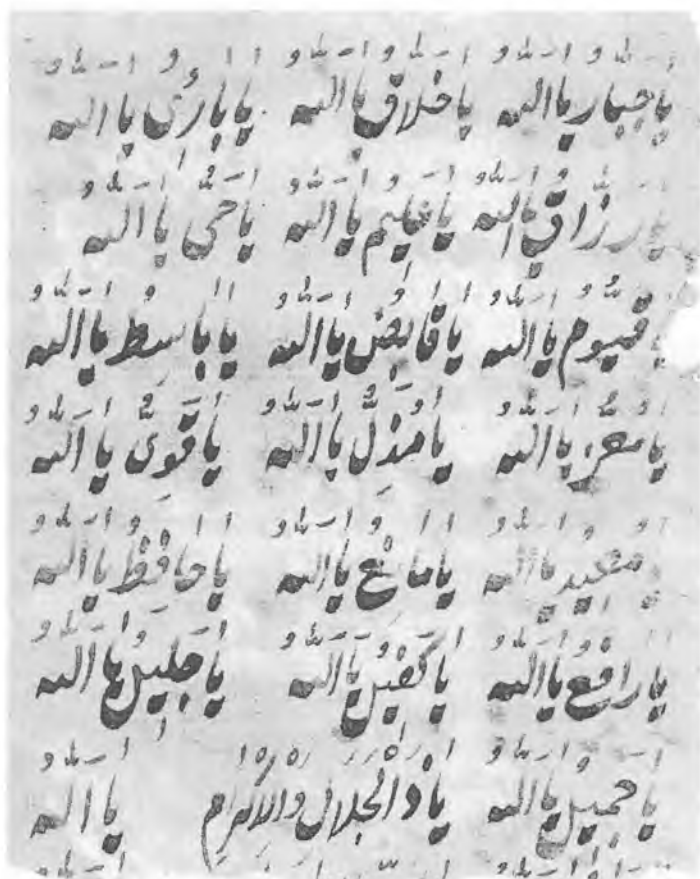 يا جبار يا الله يا خلاق يا الله يا بارئ يا الله
يا رزاق يا الله يا عليم يا الله يا حي يا الله
يا قيوم يا الله يا قابض يا الله يا باسط يا الله
يا معز يا الله يا مذل يا الله يا قوي يا الله
يا الله يا مانع يا الله يا حافظ يا الله
يا رافع يا الله يا كفيل يا الله يا جليل يا الله
يا جميل يا الله يا ذالجلال والاكرام يا الله